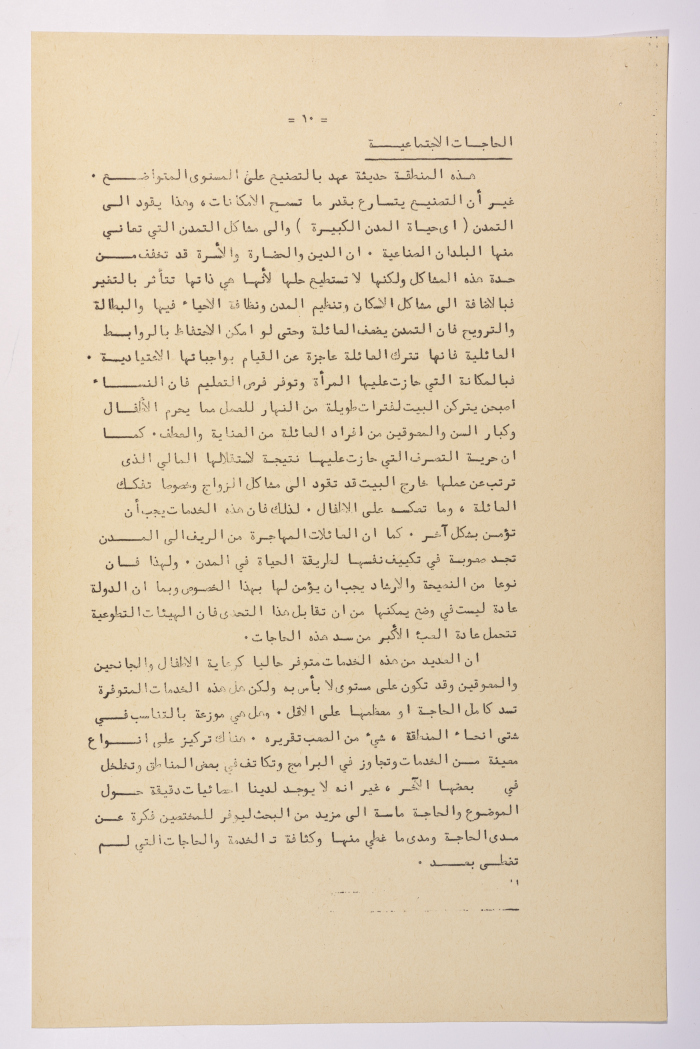 = ١٠ =
الحاجات الاجتماعية
هذه المنطقة حديثة عهد بالتصنيع على المستوى المتواضع .
غير أن التصنيع يتسارع بقدر ما تسمح الامكانات ، وهذا يقود الى
التمدن ( اى حياة المدن الكبيرة ) والى مشاكل التمدن التي تعاني
منها البلدان الصناعية . ان الدين والحضارة والأسرة قد تخفف من
حدة هذه المشاكل ولكنها لا تستطيع حلها لأنها هي ذاتها تتأثر بالتغير
فبالاضافة الى مشاكل الاسكان وتنظيم المدن ونظافة الاحياء فيها والبطالة
والترويح فان التمدن يضعف العائلة وحتى لو امكن الاحتفاظ بالروابط
العائلية فانها تترك العائلة عاجزة عن القيام بواجباتها الاعتيادية .
فبالمكانة التي حازت عليها المرأة وتوفر فرص التعليم فان النساء
اصبحن يتركن البيت لفترات طويلة من النهار للعمل مما يحرم الأطفال
وكبار السن والمعوقين من افراد العائلة من العناية والعطف . كما
ان حرية التصرف التي حازت عليها نتيجة لاستقلالها المالي الذى
ترتب عن عملها خارج البيت قد تقود الى مشاكل الزواج وخصوصا تفكك
العائلة ، وما تعكسه على الاطفال . لذلك فان هذه الخدمات يجب أن
تؤمن بشكل آخر . كما ان العائلات المهاجرة من الريف الى المدن
تجد صعوبة في تكييف نفسها لطريقة الحياة في المدن . ولهذا فان
نوعا من النصيحة والارشاد يجب ان يؤمن لها بهذا الخصوص وبما ان الدولة
عادة ليست في وضع يمكنها من ان تقابل هذا التحدى فان الهيئات التطوعية
تتحمل عادة العبء الأكبر من سد هذه الحاجات .
ان العديد من هذه الخدمات متوفر حاليا كرعاية الاطفال والجانحين
والمعوقين وقد تكون على مستوى لا بأس به ولكن هل هذه الخدمات المتوفرة
تسد كامل الحاجة او معظمها على الاقل . وهل هي موزعة بالتناسب في
شتى انحاء المنطقة ، شيء من الصعب تقريره . هناك تركيز على انواع
معينة من الخدمات وتجاوز في البرامج وتكاتف في بعض المناطق وتخلخل
في بعضها الآخر ، غير انه لا يوجد لدينا احصائيات دقيقة حول
الموضوع والحاجة ماسة الى مزيد من البحث ليوفر للمختصين فكرة عن
مدى الحاجة ومدى ما غطي منها وكثافة تـ الخدمة والحاجات التي لم
تغطى بعد .